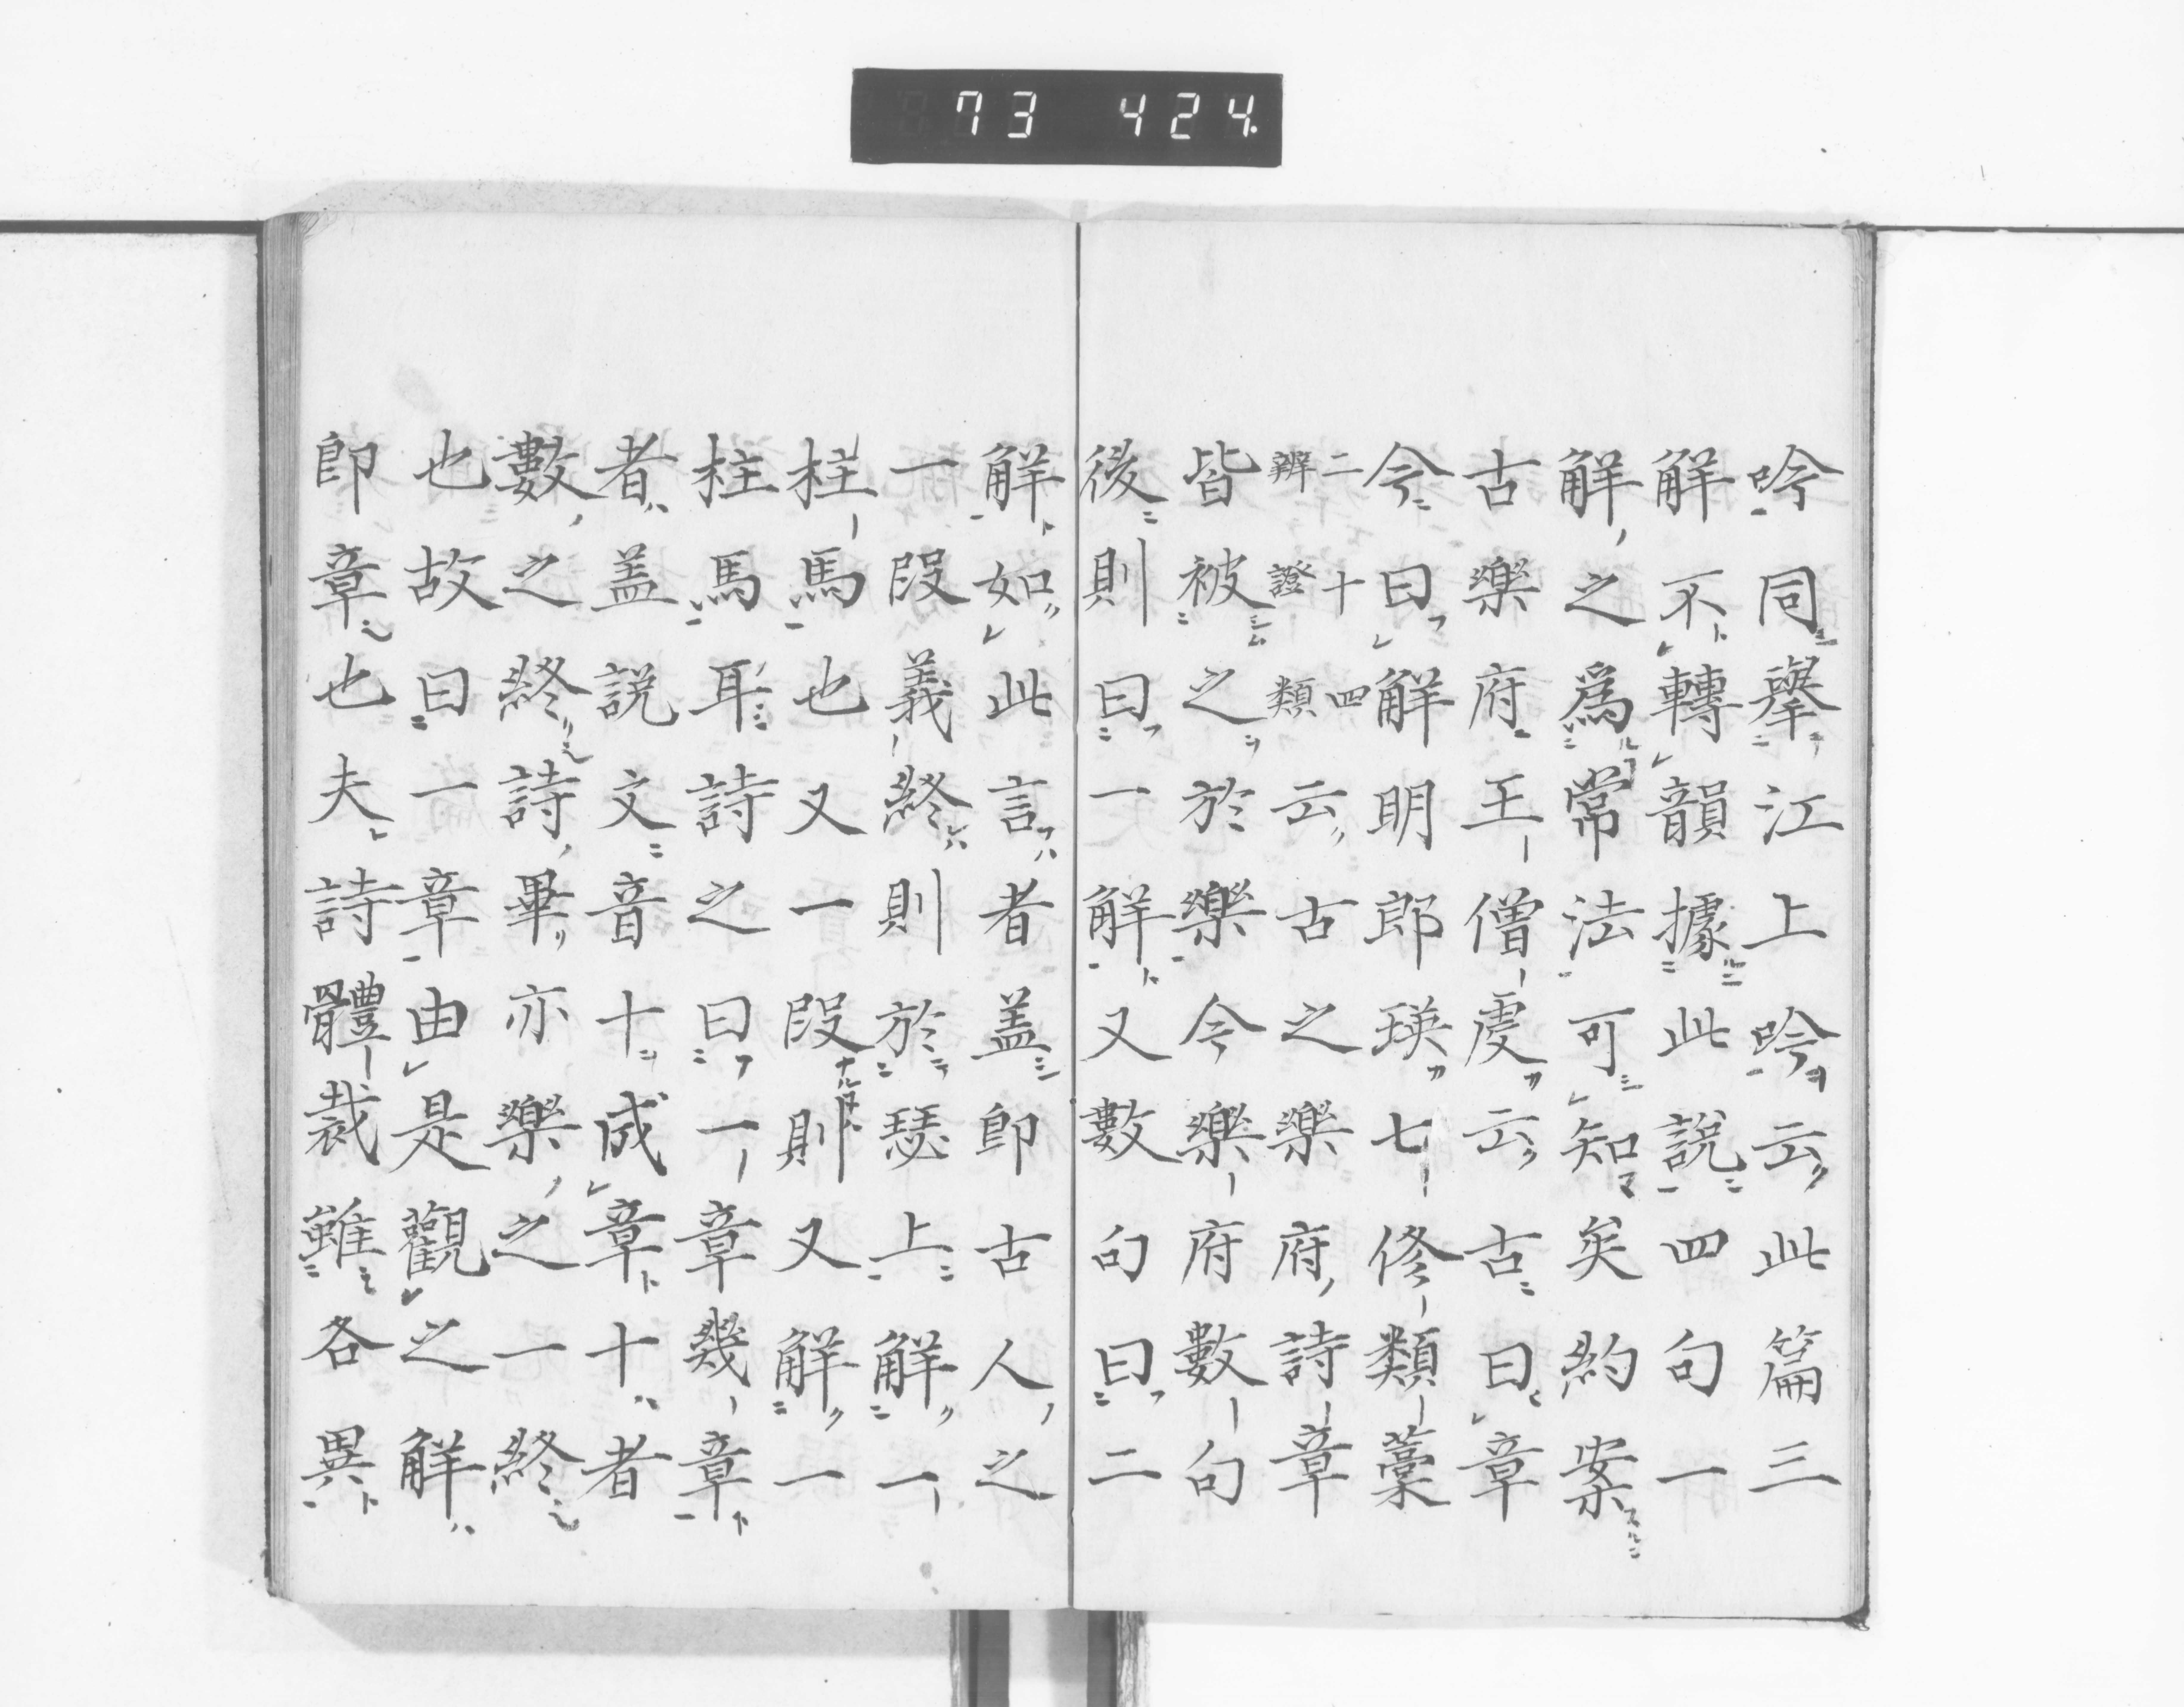 73 424.
吟同擧江上吟云此篇三
解不轉韻據此說四句一
解之爲常法可知矣約案
古樂府王僧虔云古曰章
今曰解明郎瑛七修類藁
二十四
辨證類
云古之樂府詩章
皆被之於樂今樂府數句
後則曰一解又數句曰二
解如此言者盖即古人之
一段義終則於瑟上解一
柱馬也又一段則又解一
柱馬耳詩之曰一章幾章
者盖說文音十成章十者
數之終詩畢亦樂之一終
也故曰一章由是觀之解
即章也夫詩體裁雖各異